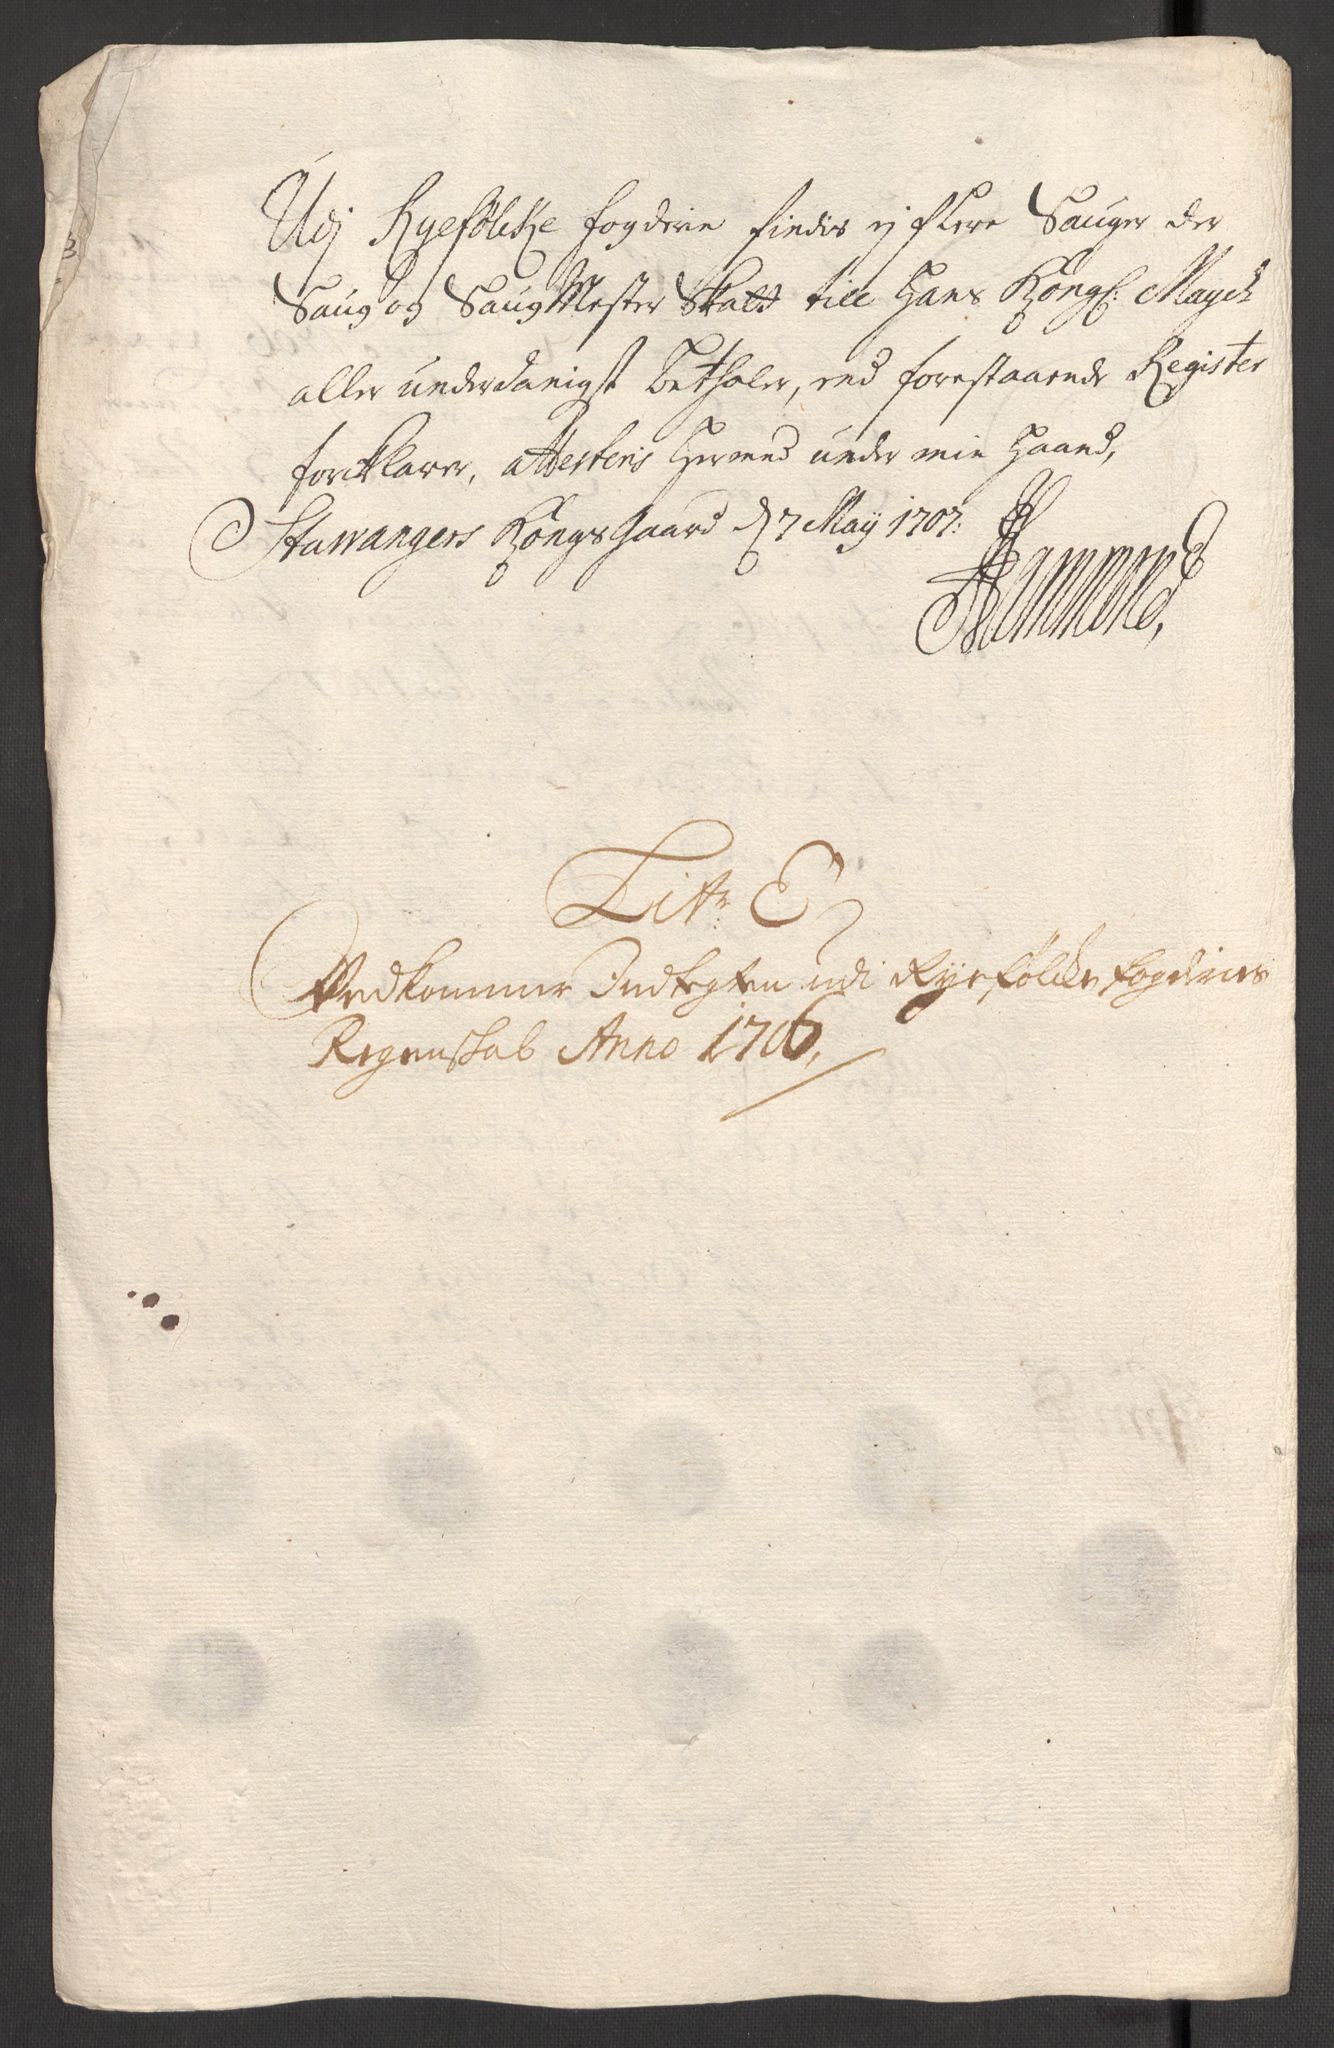 Udj Ryefölcke fogderie findis ej flere Sauger der
Saug og Saug Mester Skatt till Hans Kongl: Mayst
aller underdanigst betahler, end forestaaende Register
forcklarer, attesteris hermed under min Haand,
Stawangers Kongsgaard d 7 Maij 1707:
Hammond,
Litr: E
Vedkommer Indtegten udi Ryefölcke fogderies
Regenskab Anno 1706,